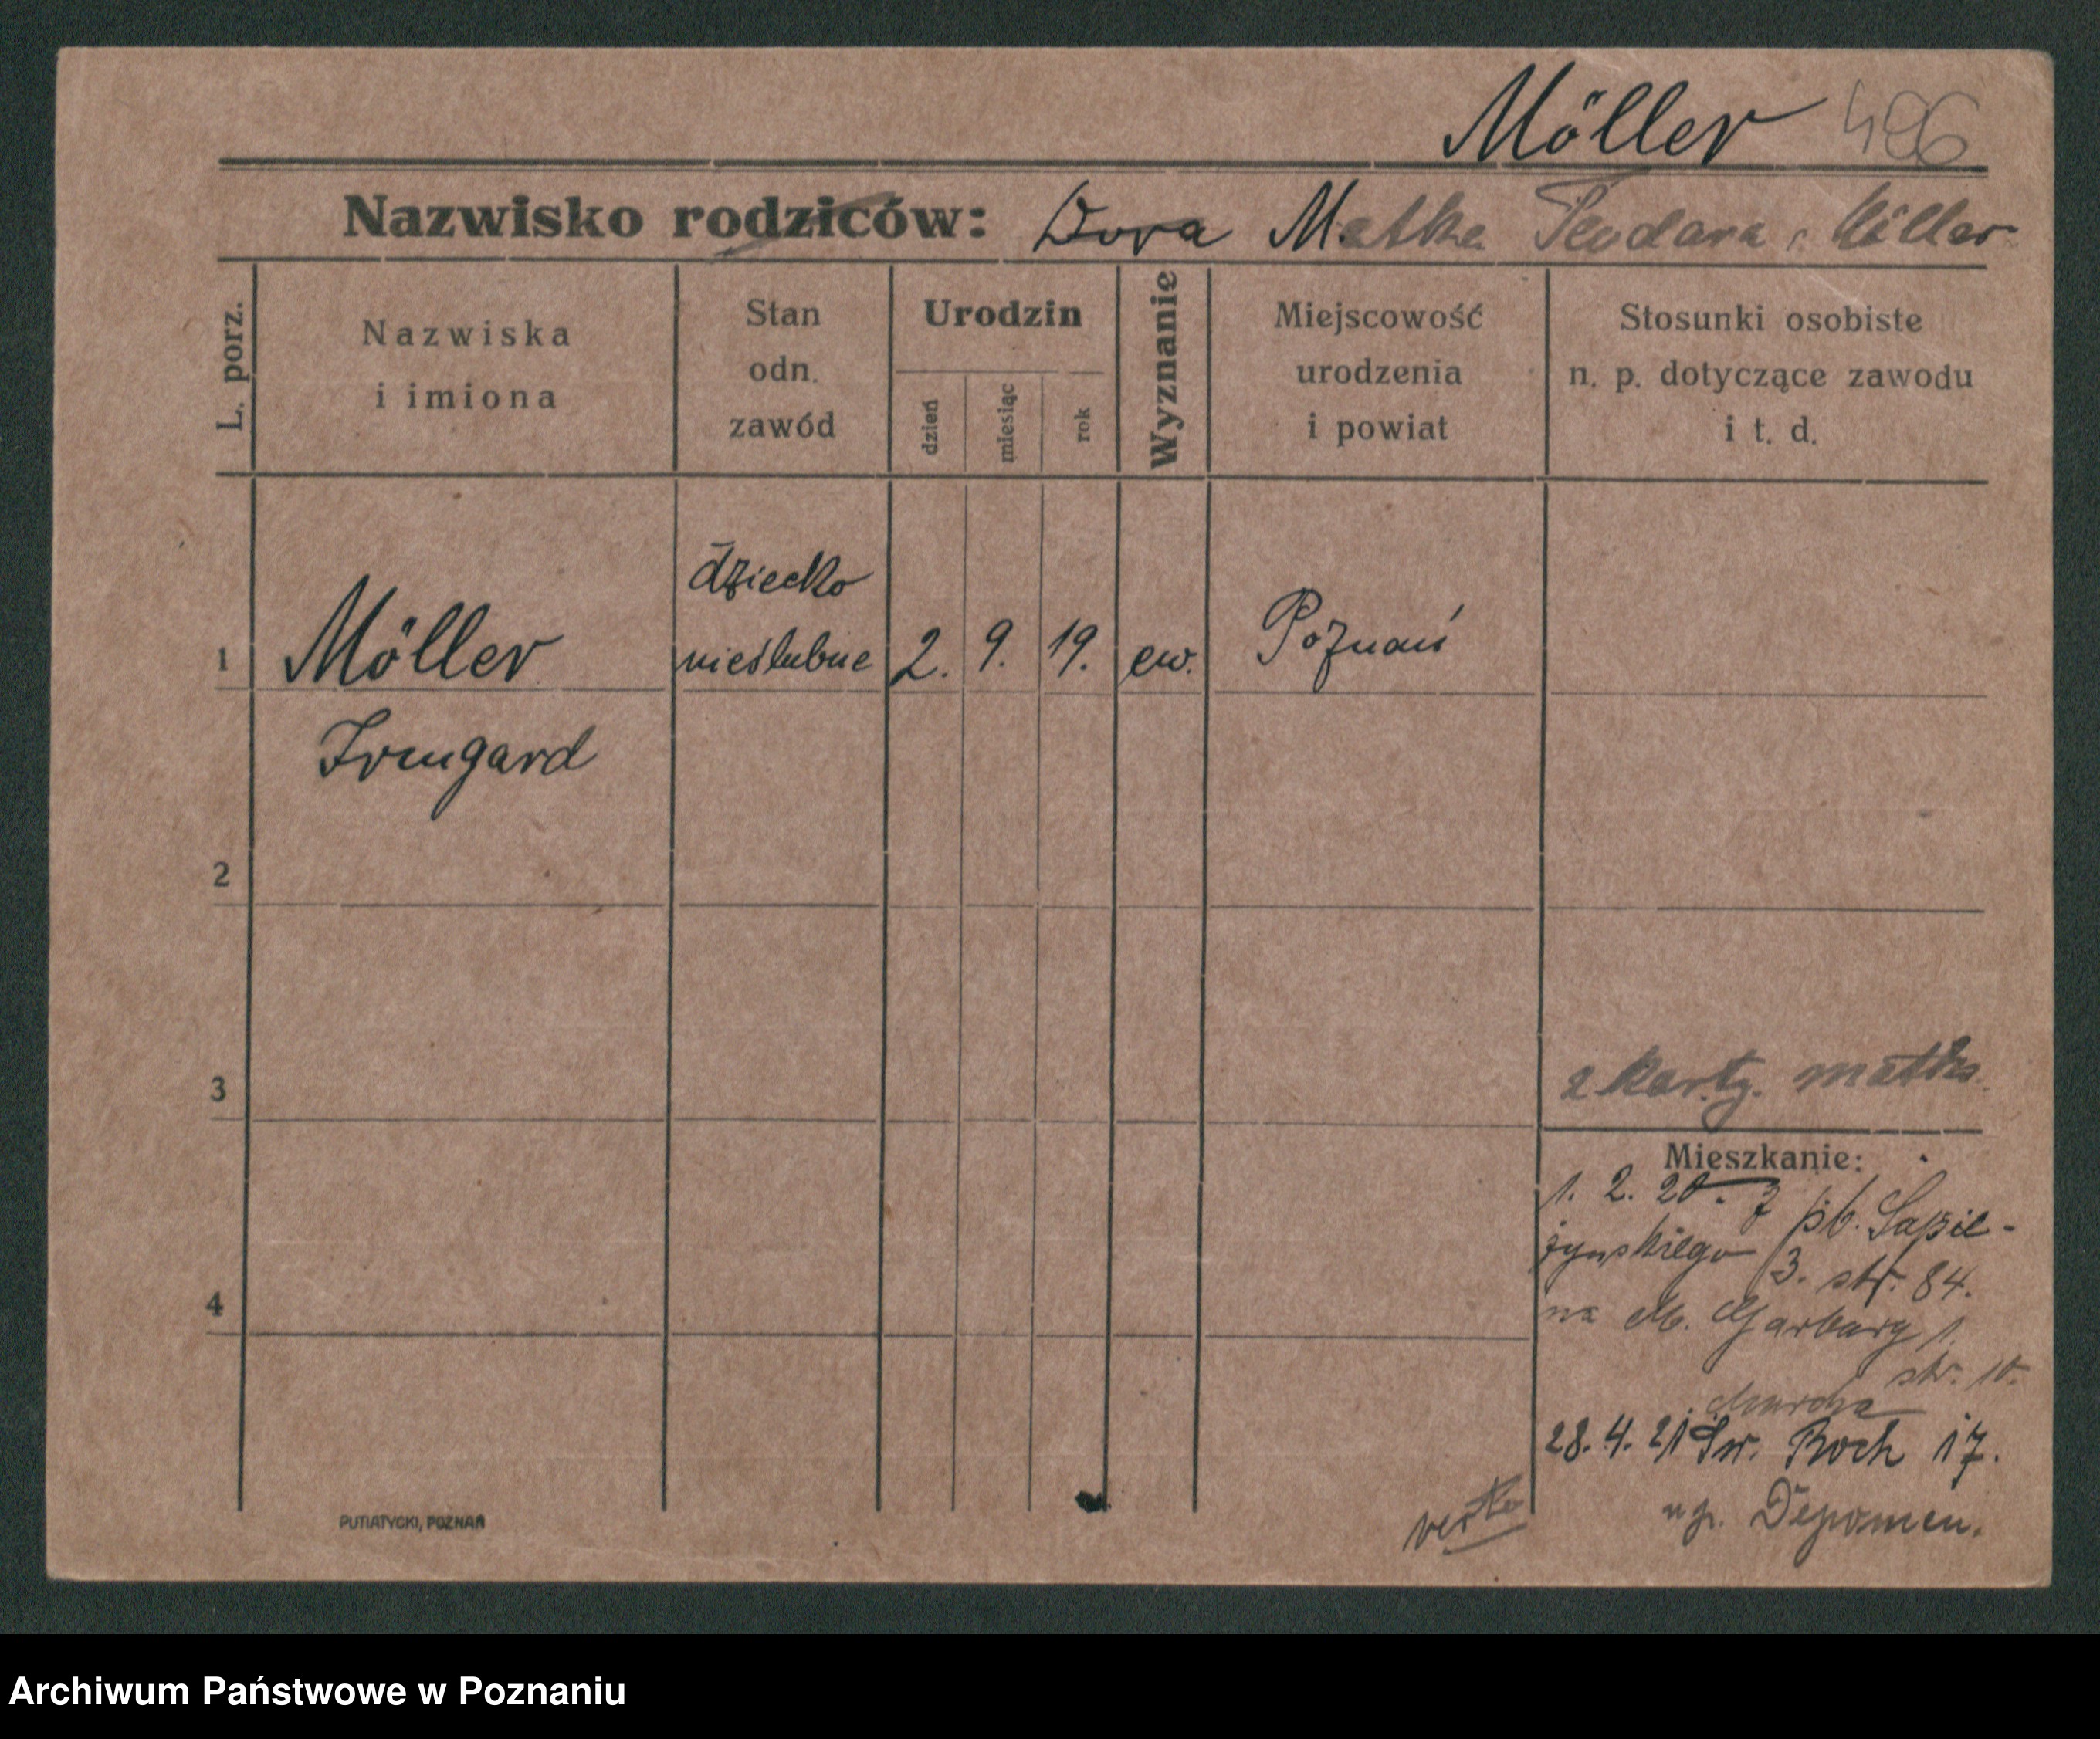 Möller 486
Nazwisko rodziców: Dora Matka Teodora Möller
L. porz.
Nazwiska
i imiona
Stan
odn.
zawód
Urodzin
dzień
miesiąc
rok
Wyznanie
Miejscowość
urodzenia
i powiat
Stosunki osobiste
n. p. dotyczące zawodu
i t. d.
dziecko
1 Möller nieślubne 2. 9. 19. ew. Poznań
Irmgard
2
3
z karty matki
Mieszkanie:
1. 2. 20. z pb. Sapie-
żynskiego 3. str. 84.
na M. Garbary 1.
str. 10.
28.4.21 Św. Roch 17.
verte
PUTIATYCKI, POZNAŃ
4
Archiwum Państwowe w Poznaniu